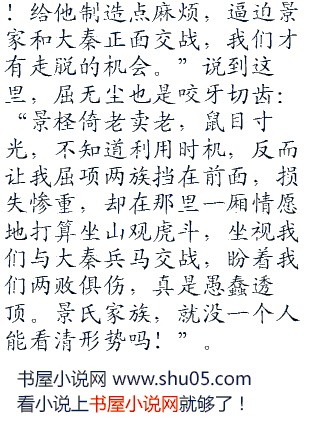 ！给他制造点麻烦，逼迫景
家和大秦正面交战，我们才
有走脱的机会。”说到这
里，屈无尘也是咬牙切齿：
“景柽倚老卖老，鼠目寸
光，不知道利用时机，反而
让我屈项两族挡在前面，损
失惨重，却在那里一厢情愿
地打算坐山观虎斗，坐视我
们与大秦兵马交战，盼着我
们两败俱伤，真是愚蠢透
顶。景氏家族，就没一个人
能看清形势吗！”。
书屋小说网 www.shu05.com
看小说上书屋小说网就够了！